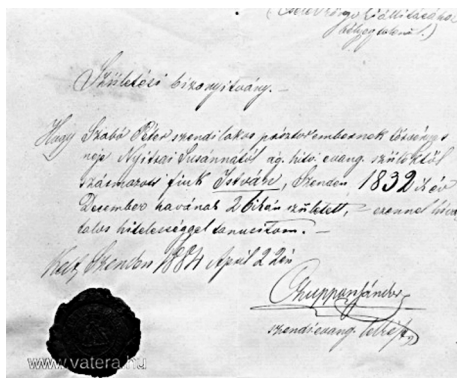 Születési bizonyitvány. –
Hogy Szabó Péter szendi lakos pásztorembernek törvényes
neje Nyitrai Susánnától ág. hitv. evang. szülőktől
származott fiuk István, Szenden 1832 ik év
December havának 26ikán született, – ezennel hiva-
talos hitelességgel tanusitom. –
Kelt Szenden 1884 April 22én
Chuppon Sándor
szendi evang. lelkész
www.vatera.hu